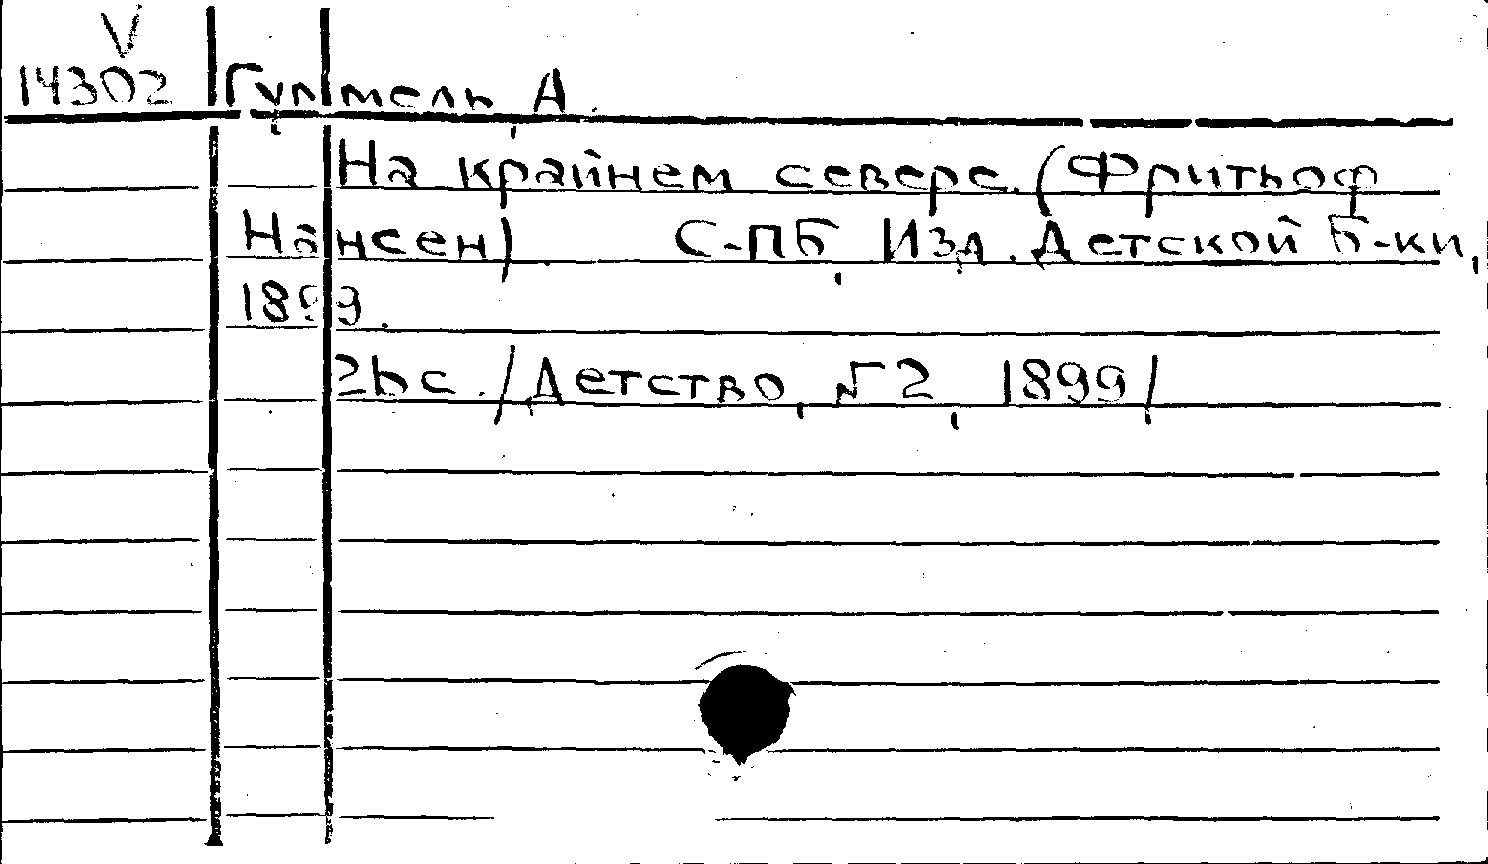 V
14302 А.
На крайнем севере. (Фритьоф
Нансен). С-ПБ, Изд. Детской Б-ки,
1899.
с. /Детство, №2, 1899/